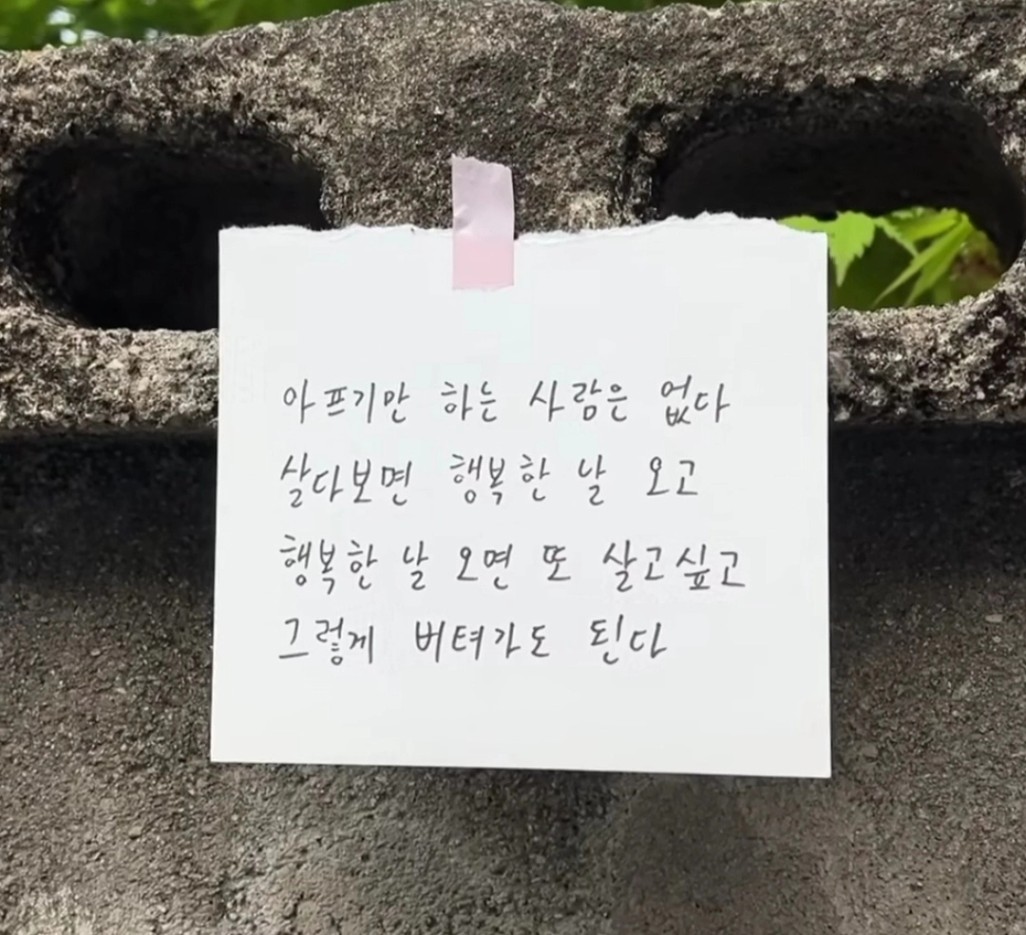 아프기만 하는 사람은 없다
살다보면 행복한 날 오고
행복한 날 오면 또 살고싶고
그렇게 버텨가도 된다